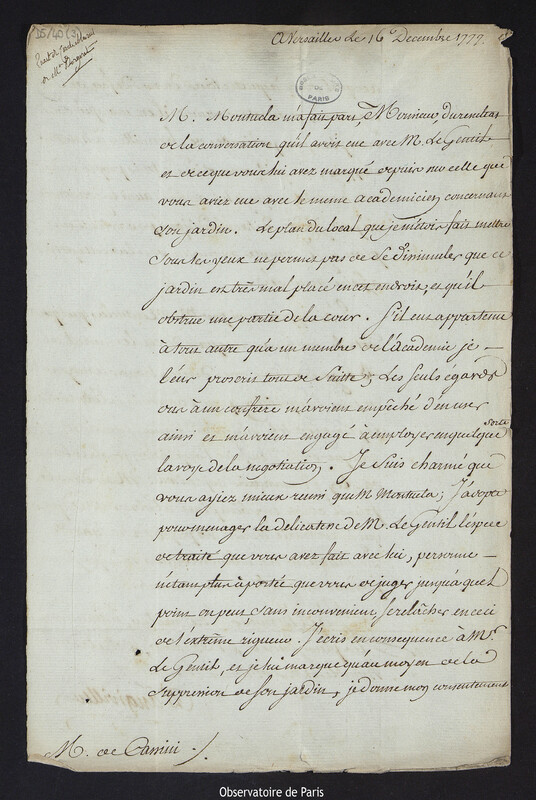 D5/40 (3)
A Versailles Le 16 Decembre 1777.
OBSERVATOIRE DE PARIS
M. Montucla m'a fait part, Monsieur, du resultat
de la conversation qu'il avoit eue avec M. Le Gentil
et de ce que vous lui avez marqué depuis sur celle que
vous aviez eue avec le meme academicien concernant
son jardin. Le plan du local que je m'etois fait mettre
sous les yeux ne permet pas de se dissimuler que ce
jardin est très mal placé en cet endroit, et qu'il
obstrue une partie de la cour. S'il eut appartenu
à tout autre qu'a un membre de l'academie je
l'eus proscrit tout de suitte; Les seuls égards
dus à un confrere m'avoient empêché d'en user
ainsi et m'avoient engagé à employer en quelque sorte
la voye de la negotiation. Je suis charmé que
vous ayiez mieux reussi que M. Montucla; J'adopte
pour menager la delicatesse de M. Le Gentil l'espece
de traité que vous avez fait avec lui, personne
n'etant plus à portée que vous de juger jusqu'a quel
point on peut, sans inconvenient se relâcher en ceci
de l'extrême rigueur. J'ecris en consequence à M.
Le Gentil, et je lui marque qu'au moyen de la
suppression de son jardin, je donne mon consentement
M. de Cassini ./.
Observatoire de Paris